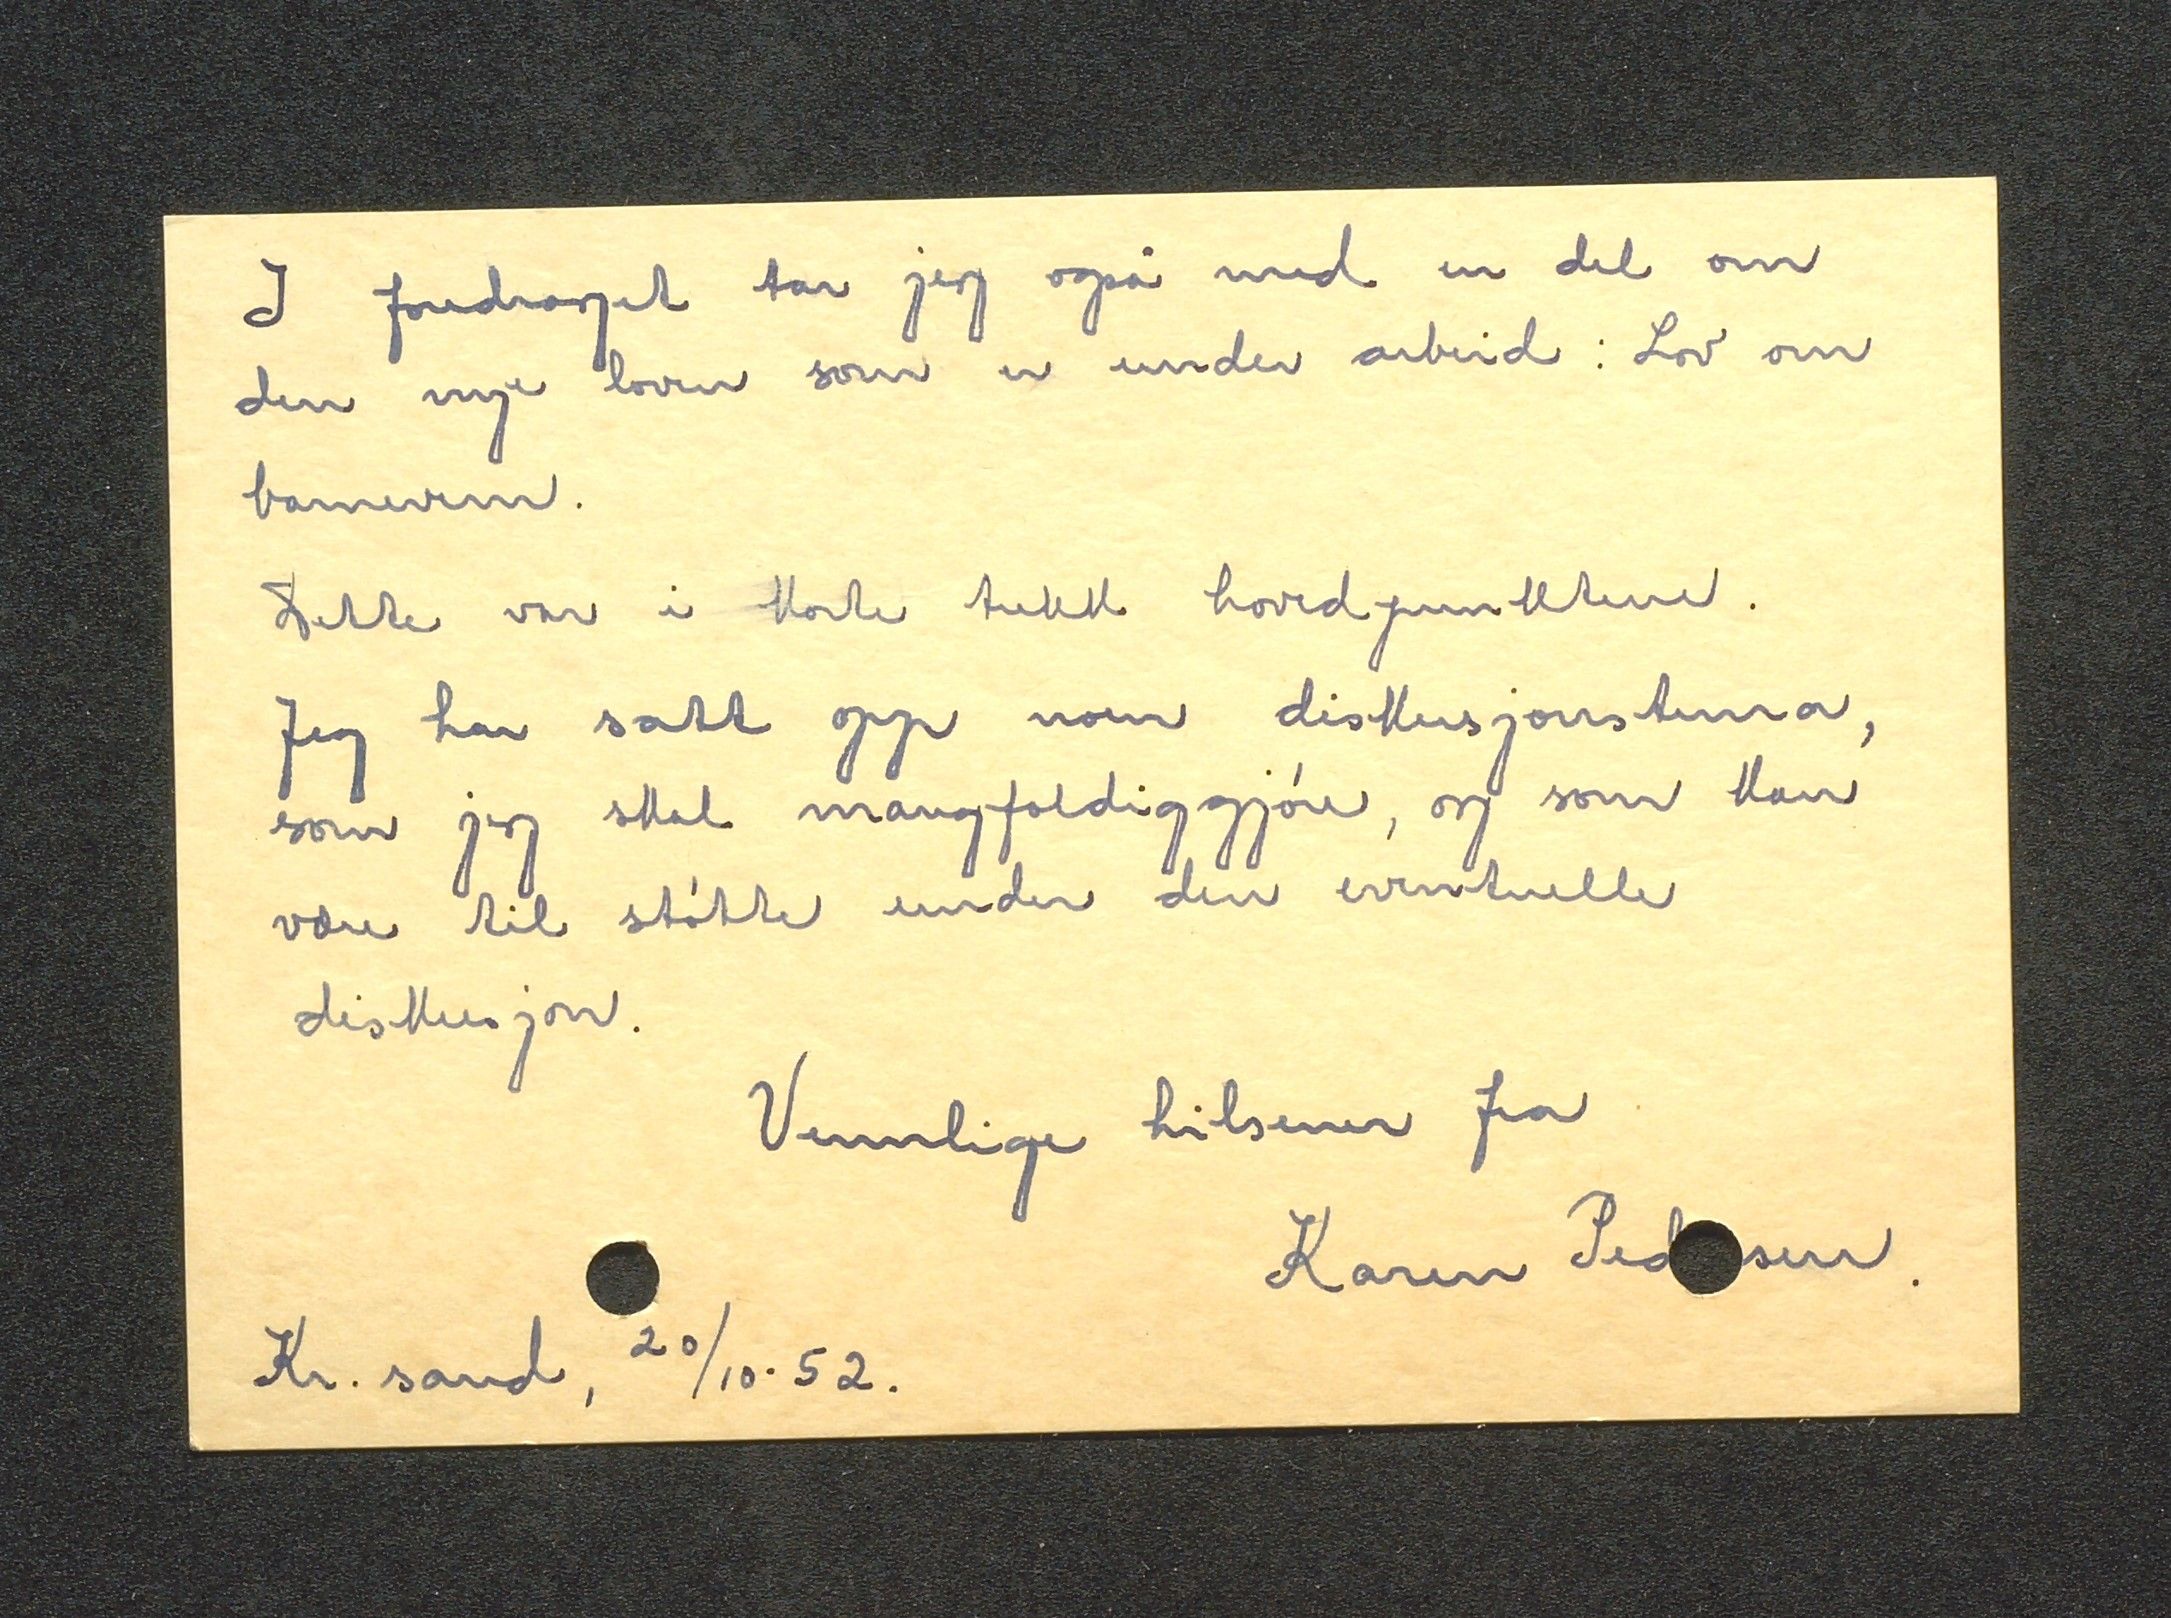 I foredraget tar jeg også med en del om
den nye loven som er under arbeid: Lov om
barnevern.
Dette var i korte trekk hovedpunktene.
Jeg har satt opp noen diskusjonstema,
som jeg skal mangfoldiggjøre, og som kan
være til støtte under den eventuelle
diskusjon.
Vennlige hilsener fra
Karen Ped sen.
Kr. sand, 20/10-52.